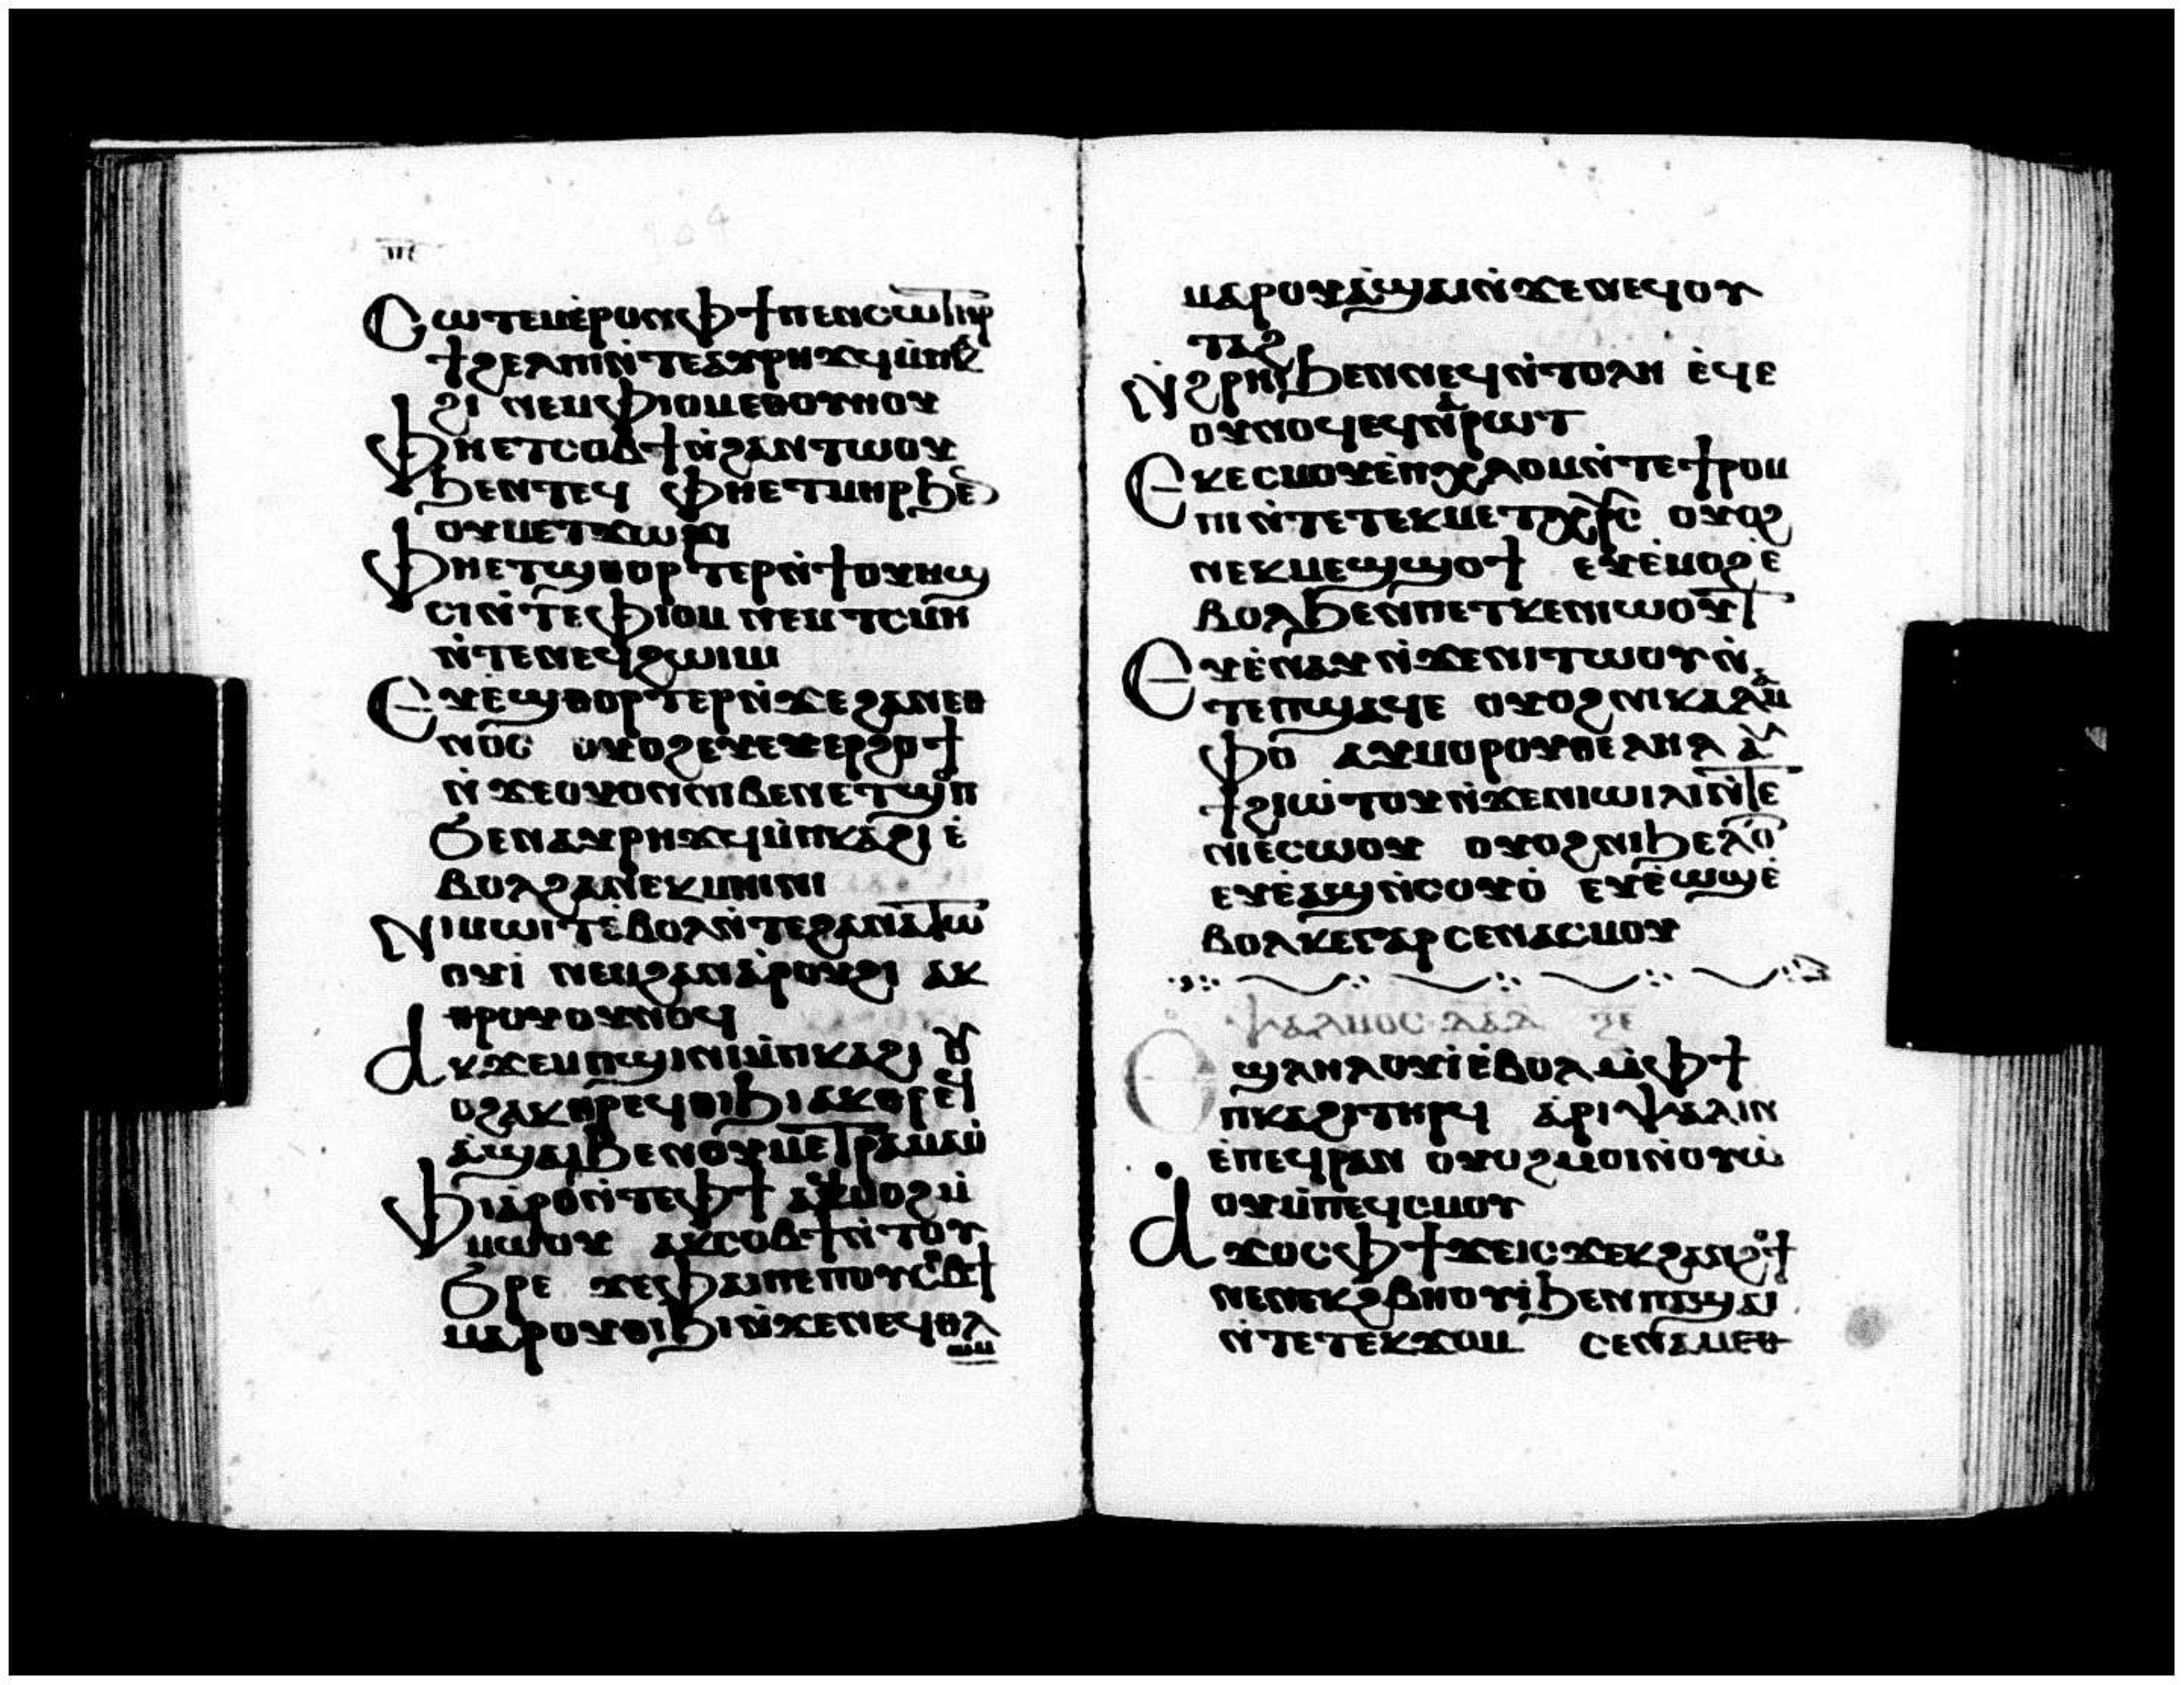 ⲥⲱⲧⲉⲙⲉ̀ⲣⲟⲛⲫϯⲡⲉⲛⲥⲱⲧⲏⲣ
ϯϩⲉⲗⲡⲓⲛ̀ⲧⲉⲁⲩⲣⲏϫϥⲙ̀ⲡⲕⲁ
ϩⲓ ⲛⲉⲙⲫⲓⲟⲙⲉⲑⲟⲩⲏⲟⲩ
ⲫⲏⲉⲧⲥⲟⲃϯⲛ̀ϩⲁⲛⲧⲱⲟⲩ
ϧⲉⲛⲧⲉϥ ⲫⲏⲉⲧⲙⲏⲣϧⲉⲛ
ⲟⲩⲙⲉⲧϫⲱⲣⲓ
ⲫⲏⲉⲧϣⲑⲟⲣⲧⲉⲣⲛ̀ϯⲟⲩⲏϣ
ⲥⲓⲛ̀ⲧⲉⲫⲓⲟⲙ ⲛⲉⲙⲧⲥⲙⲏ
ⲛ̀ⲧⲉⲛⲉϥϩⲱⲓⲙⲓ
ⲉⲩⲉ̀ϣⲑⲟⲣⲧⲉⲣⲛ̀ϫⲉϩⲁⲛⲉⲑ
ⲛⲟⲥ ⲟⲩⲟϩⲉⲩⲉⲉⲣϩⲟϯ
ⲛ̀ϫⲉⲟⲩⲟⲛⲛⲓⲃⲉⲛⲉⲧϣⲟⲡ
ϧⲉⲛⲁⲩⲣⲏϫϥⲙ̀ⲡⲕⲁϩⲓ ⲉ̀
ⲃⲟⲗϩⲁⲛⲉⲕⲙⲏⲓⲛⲓ
ⲛⲓⲙⲱⲓⲧⲉ̀ⲃⲟⲗⲛ̀ⲧⲉϩⲁⲛⲁ̀ⲧⲟ
ⲟⲩⲓ̀ ⲛⲉⲙϩⲁⲛⲁ̀ⲣⲟⲩϩⲓ ⲁⲕ
ⲑⲣⲟⲩⲟⲩⲛⲟϥ
ⲁⲕϫⲉⲙⲡϣⲓⲛⲓⲙ̀ⲡⲕⲁϩⲓ ⲟⲩ
ⲟϩⲁⲕⲑⲣⲉϥⲑⲓϧⲓ ⲁⲕⲑⲣⲉϥ
ⲁ̀ϣⲁⲓϧⲉⲛⲟⲩⲙⲉⲧⲣⲁⲙⲁⲟ̀
ⲫⲓⲁⲣⲟⲛ̀ⲧⲉⲫϯ ⲁϥⲙⲟϩⲙ̀
ⲙⲱⲟⲩ ⲁⲕⲥⲟⲃϯⲛ̀ⲧⲟⲩ
ϧⲣⲉ ϫⲉⲫⲁⲓⲡⲉⲡⲟⲩⲥⲟⲃϯ
ⲙⲁⲣⲟⲩⲑⲓϧⲓⲛ̀ϫⲉⲛⲉϥⲑⲗ
ⲱⲙ
ⲙⲁⲣⲟⲩⲁ̀ϣⲁⲓⲛ̀ϫⲉⲛⲉϥⲟⲩ
ⲧⲁϩ
ⲛ̀ϩⲣⲏⲓϧⲉⲛⲛⲉϥⲛ̀ⲧⲟⲗⲏ ⲉ̀ϥⲉ
ⲟⲩⲛⲟϥⲉϥⲛⲁⲣⲱⲧ
ⲉⲕⲉⲥⲙⲟⲩⲉ̀ⲡⲭⲗⲟⲙⲛ̀ⲧⲉϯⲣⲟⲙ
ⲡⲓⲛ̀ⲧⲉⲧⲉⲕⲙⲉⲧⲭⲣⲥ ⲟⲩⲟϩ
ⲛⲉⲕⲙⲉϣϣⲟϯ ⲉⲩⲉ̀ⲙⲟϩⲉ̀
ⲃⲟⲗϧⲉⲛⲡⲉⲧⲕⲉⲛⲓⲱⲟⲩⲧ
ⲉⲩⲉ̀ⲛⲁⲩⲛ̀ϫⲉⲛⲓⲧⲱⲟⲩⲛ̀
ⲧⲉⲡϣⲁϥⲉ ⲟⲩⲟϩⲛⲓⲕⲁⲗⲁⲙ
ⲫⲟ ⲁⲩⲙⲟⲣⲟⲩⲑⲉⲗⲏⲗ ⲁⲩ
ϯϩⲓⲱⲧⲟⲩⲛ̀ϫⲉⲛⲓⲱⲓⲗⲓⲛ̀ⲧⲉ
ⲛⲓⲉ̀ⲥⲱⲟⲩ ⲟⲩⲟϩⲛⲓϧⲉⲗⲟⲧ
ⲉⲩⲉ̀ⲁϣⲛ̀ⲥⲟⲩⲟ̀ ⲉⲩⲉ̀ⲱϣⲉ̀
ⲃⲟⲗⲕⲉⲅⲁⲣⲥⲉⲛⲁⲥⲙⲟⲩ
ⲯⲁⲗⲙⲟⲥ ⲇⲁⲇ ⲝⲉ
ⲉϣⲗⲏⲗⲟⲩⲓ̀ⲉ̀ⲃⲟⲗⲙ̀ⲫϯ
ⲡⲕⲁϩⲓⲧⲏⲣϥ ⲁ̀ⲣⲓⲯⲁⲗⲓⲛ
ⲉ̀ⲡⲉϥⲣⲁⲛ ⲟⲩⲟϩⲙⲟⲓⲛ̀ⲟⲩⲱ̀
ⲟⲩⲙ̀ⲡⲉϥⲥⲙⲟⲩ
ⲁϫⲟⲥⲫϯϫⲉⲓⲥϫⲉⲕϩⲁⲛϩⲟϯ
ⲛⲉⲛⲉⲕϩⲃⲏⲟⲩⲓ̀ϧⲉⲛⲡⲁ̀ϣⲁⲓ
ⲛ̀ⲧⲉⲧⲉⲕϫⲟⲙ ⲥⲉⲛⲁⲙⲉⲑ